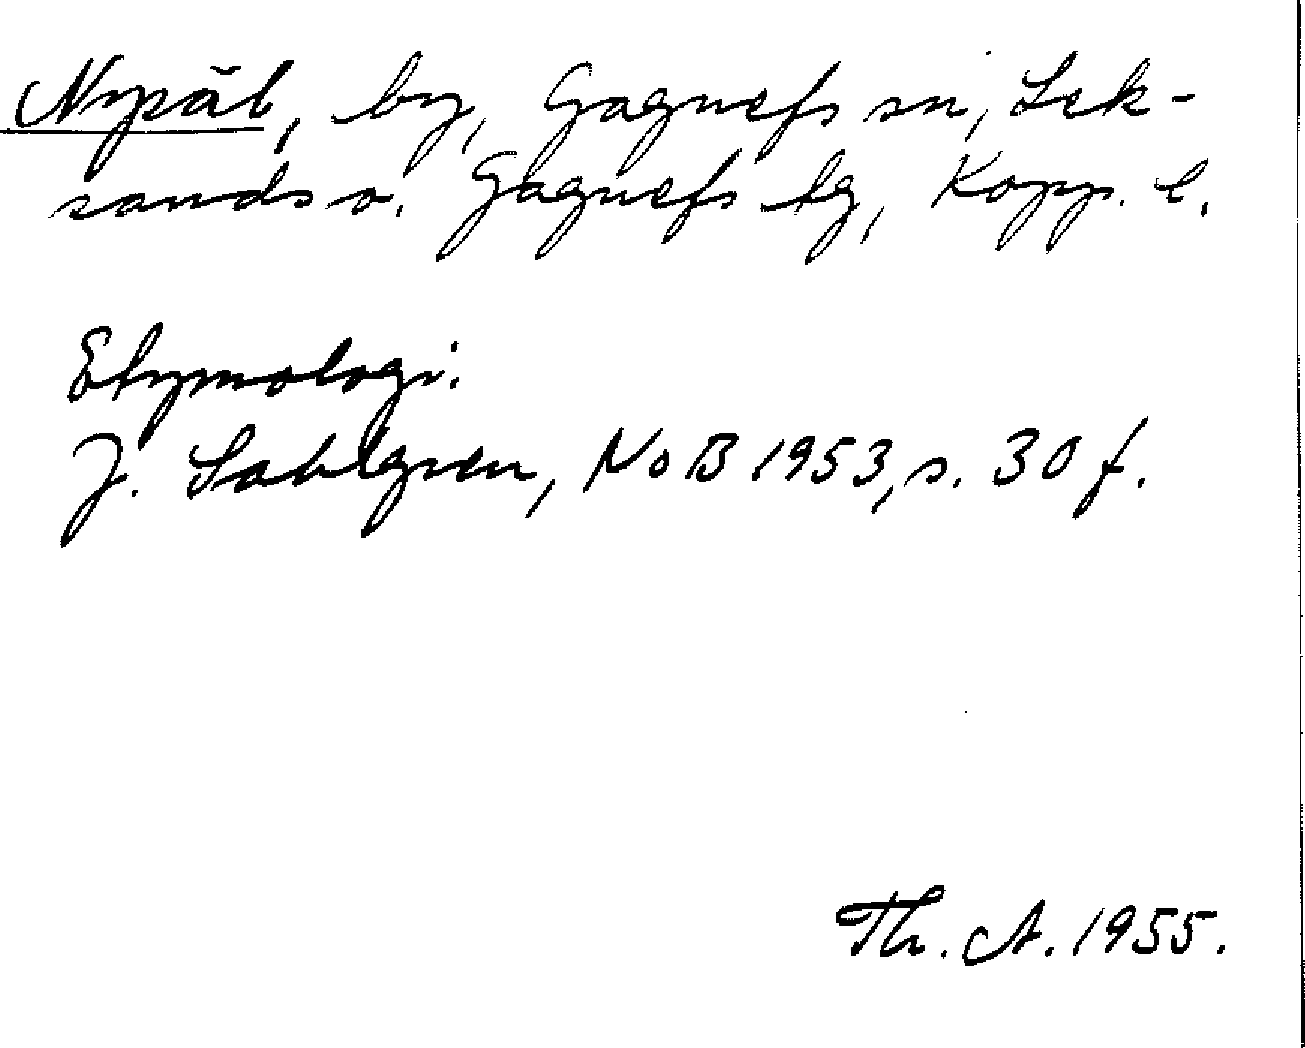 Nypäl, by, Gagnefs sn, Lek-
sands o. Gagnefs tg, Kopp. l.
Etymologi.
J. Sahlgren, NoB 1953, s. 30 f.
Th. A. 1955.